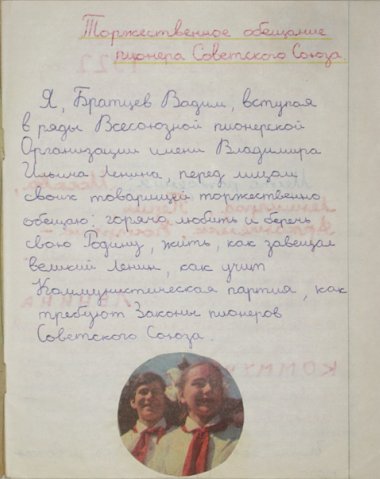 Торжественное обещание
пионера Советского Союза.
Я, Братцев Вадим, вступая
в ряды Всесоюзной пионерской
Организации имени Владимира
Ильича Ленина, перед лицом
своих товарищей торжественно
обещаю: горячо любить и беречь
свою Родину, жить, как завещал
великий Ленин, как учит
Коммунистическая партия, как
требуют Законы пионеров
Советского Союза.